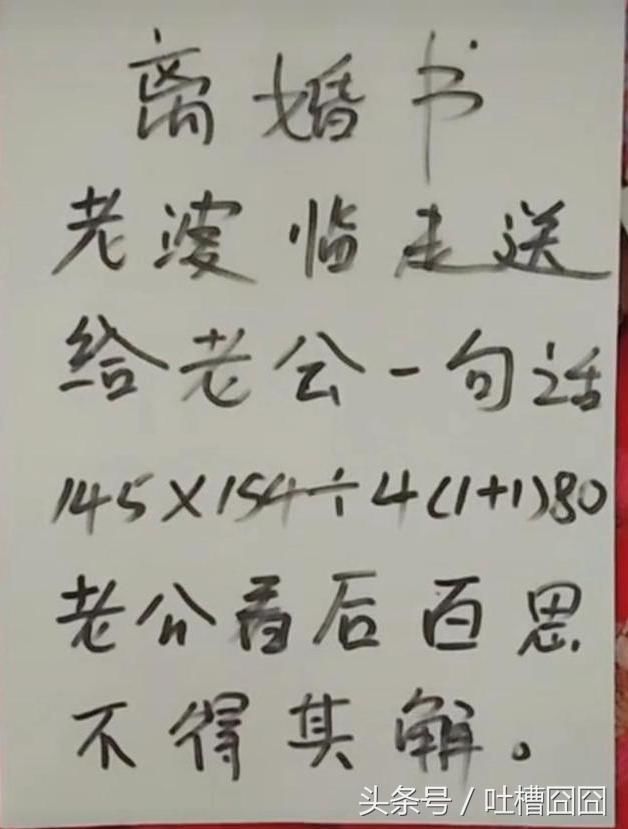 离婚书
老婆临走送
给老公一句话
145×154÷4(1+1)80
老公看后百思
不得其解。
头条号 / 吐槽囧囧